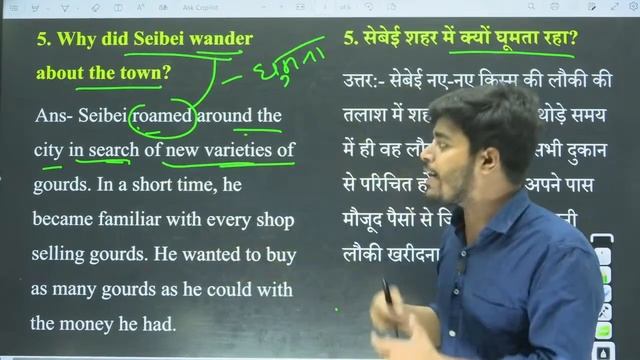 Ask Copilot
5. Why did Seibei wander
about the town?
घूमना
Ans- Seibei roamed around the
city in search of new varieties of
gourds. In a short time, he
became familiar with every shop
selling gourds. He wanted to buy
as many gourds as he could with
the money he had.
5. सेबेई शहर में क्यों घूमता रहा?
उत्तर:- सेबेई नए-नए किस्म की लौकी की
तलाश में थोड़े समय
में ही वह दुकान
से परिचित अपने पास
मौजूद पैसों से
लौकी खरीदना